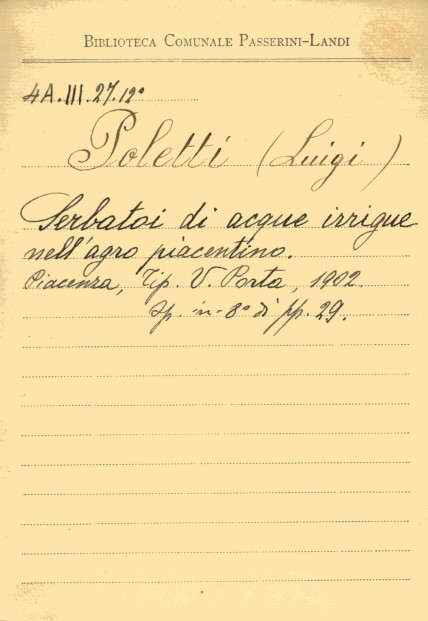 BIBLIOTECA COMUNALE PASSERINI-LANDI
4A.III.27.12°
Poletti (Luigi)
Serbatoi di acque irrigue
nell'agro piacentino.
Piacenza, Tip. V. Porta, 1902.
in-8° di pp. 29.